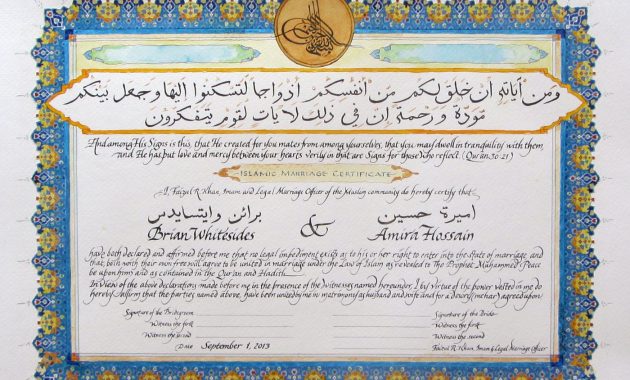 ومن آياته أن خلق لكم من أنفسكم أزواجا لتسكنوا إليها وجعل بينكم
مودة ورحمة إن في ذلك لآيات لقوم يتفكرون
And among His Signs is this, that He created for you mates from among yourselves, that you may dwell in tranquility with them,
and He has put love and mercy between your hearts verily in that are Signs for those who reflect. (Qur'an 30:21)
ISLAMIC MARRIAGE CERTIFICATE
I, Faizul R. Khan, Imam and Legal Marriage Officer of the Muslim community do hereby certify that
برائن وايتسايدس
اميرة حسين
Brian Whitesides & Amira Hossain
have both declared and affirmed before me that no legal impediment exists as to his or her right to enter into the state of marriage, and
that both with their own free will agree to be united in marriage under the Law of Islam as revealed to The Prophet Muhammed (Peace
be upon him) and as contained in the Quran and Hadith.
In view of the above declarations made before me in the presence of the witnesses named hereunder, I by virtue of the power vested in me do
hereby confirm that the parties named above, have been united by me in matrimony as husband and wife and for a dowry (mehar) agreed upon
Signature of the Bridegroom
Signature of the Bride
Witness the first
Witness the first
Witness the second
Witness the second
Date September 1, 2013
Faizul R. Khan, Imam & Legal Marriage Officer